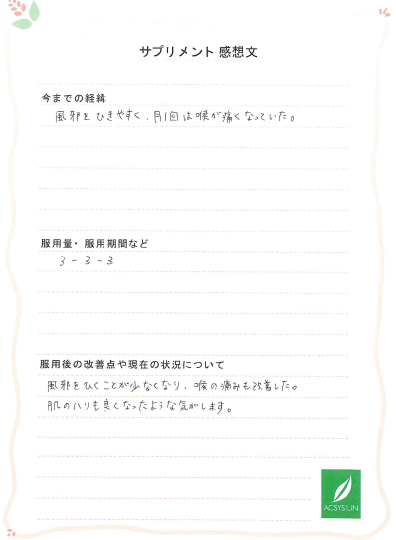 サプリメント 感想文
今までの経緯
風邪をひきやすく、月1回は喉が痛くなっていた。
服用量・服用期間など
3 - 3 - 3
服用後の改善点や現在の状況について
風邪をひくことが少なくなり、喉の痛みも改善した。
肌のハリも良くなったような気がします。
ACSYSUN